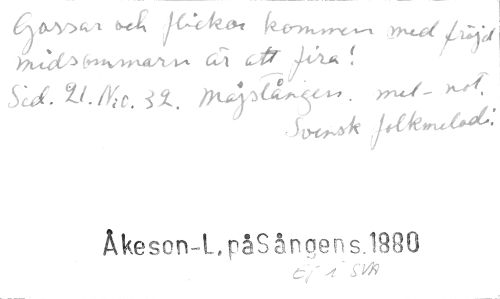 Gossar och flickor kommen med fröjd
midsommarn är att fira!
Sid. 21. No. 32. Majstången. mel-not.
Svensk folkmelodi.
Åkeson-L. påSångens.1880
Ej i SVA